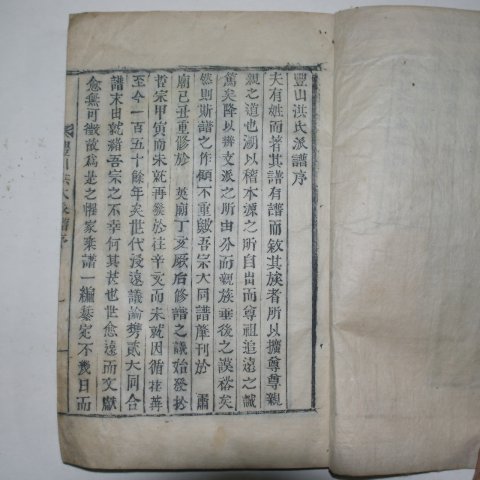 豐山洪氏派譜序
夫有姓而著其譜有譜而敘其族者所以擴尊尊親
親之道也溯以稽本源之所自出而尊祖追遠之誠
篤矣降以辨支派之所由分而親族垂後之謨裕矣
然則斯譜之作顧不重歟吾宗大同譜肇刊於 肅
廟己丑重修於 英廟丁亥厥后修譜之議始發於
哲宗甲寅而未就再發於往辛亥而未就因循荏苒
至今一百五十餘年矣世代浸遠議論携貳大同合
譜末由就緖吾宗之不幸何其甚也世愈遠而文獻
愈無可徵故爲是之懼家乘譜一編纂定不幾日而
豐山洪氏派譜序